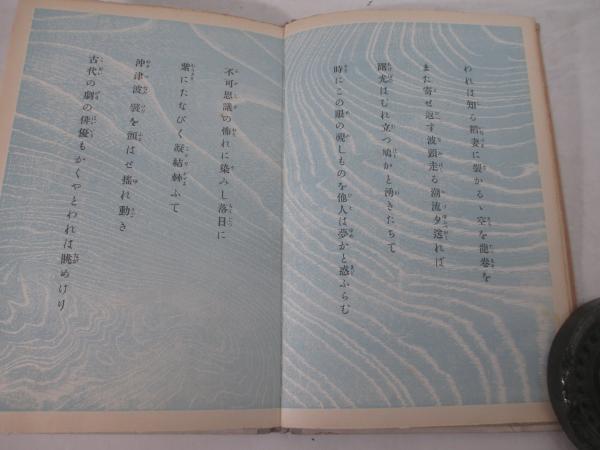 われは知る稲妻に裂かるゝ空を龍巻を
また寄せ返す波頭走る潮流夕送れば
曙光はむれ立つ鳩かと湧きたちて
時にこの眼の視しものを他人は夢かと惑ふらむ
不可思議の怖れに染みし落日に
紫にたなびく凝結ふて
沖津波襞を顫はせ揺れ動き
古代の劇の俳優もかくやとわれは眺めけり